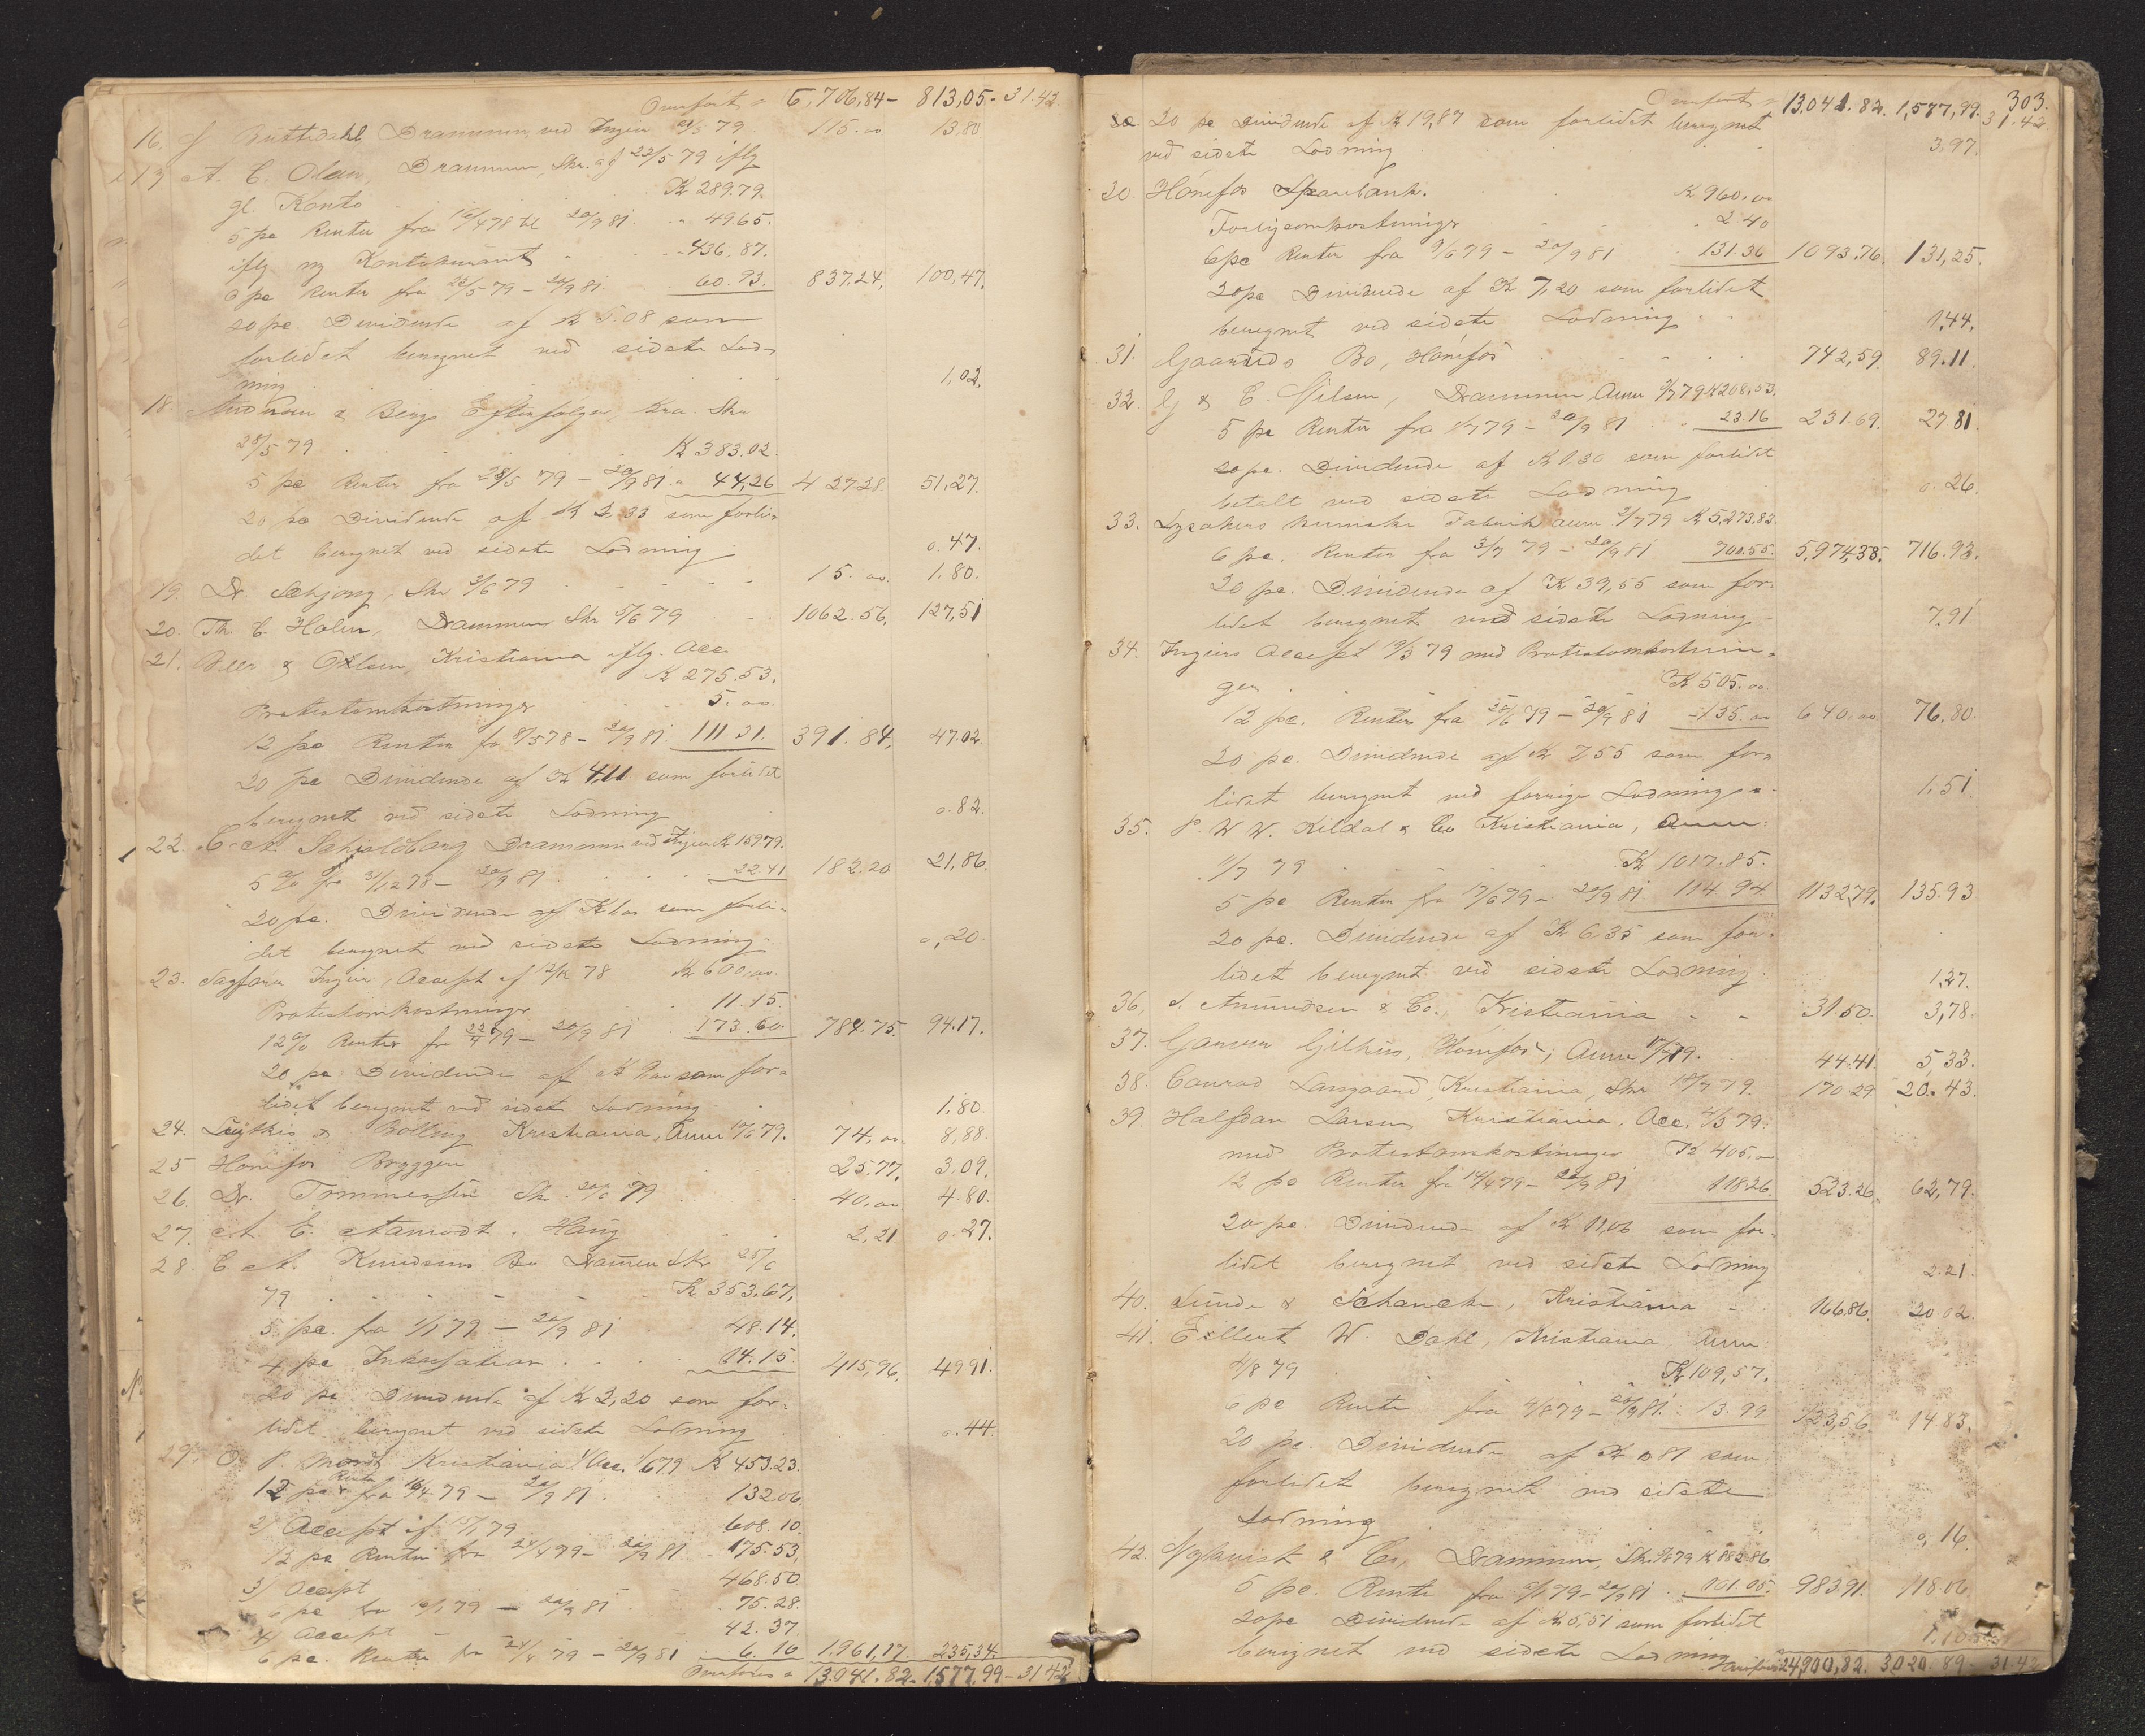 Overfört 6,706,84 - 813,05 - 31.42
16. Drammen ved Ingier 79 115.00 13,80
17 A. C. Olsen, Drammen, Skr. af 23/5 79 iflg
gl. Konto K 289.79.
5 pc Renter fra 78 til 20/9 81. 49.65.
iflg ny Kontokurant 436,87.
6 pc Renter fra 23/5 79 - 20/9 81 60.93. 837.24, 100,47,
20 pc. Dividende af K 5.08 som
forlidet beregnet ved sidste Lod-
ning 1,02,
18. Andersen & Bergs Efterfølger, Kra. Skr
28/5 79 K 383.02.
5 pc Renter fra 28/5 79 - 20/9 81 44,26 427.28. 51,27.
20 pc Dividende af K 2,33 som forli-
det beregnet ved sidste Lodning 0.47.
19. Dr. Schjong, Skr 3/6 79 15.00. 1.80.
20. Th. C. Holm, Drammen Skr 5/6 79 1062.56, 127,51
21. & Kristiania iflg. Acc
K 275.53.
Protestomkostninger 5.00.
12 pc Renter fr 8/5 78 - 20/9 81. 111 31. 391.84, 47.02
20 pc Dividende af K 4,11 som forlidet
beregnet ved sidste Lodning 0.82.
22. C. A. Schioldborg Drammen ved Ingier K 159.79.
5 % fra 31/12 78 - 20/9 81 22.41 182.20 21,86.
20 pc. Dividende af K 1.00 som forli-
det beregnet ved sidste Lodning 0,20.
23. Sagfører Ingier, Accept af 12/12 78 K 600,00.
Protestomkostninger 11.15.
12 % Renter fr 79 - 20/9 81 173.60. 784.75. 94.17.
20 pc Dividende af K som for-
lidet beregnet ved sidste Lodning 1,80.
24. & Bolling Kristiania, Ann 79. 74,00. 8,88.
25 Hønefos Bryggeri 25.77, 3.09.
26. Dr. Tommessen Skr. 20/6 79 40,00 4.80.
27. A. E. Aamodt. Haug 2,21 0.27.
28. C. A. Knudsens Bo Dramen Skr 25/6
79 K 353,67,
5 pc. fra 1/1 79 - 20/9 81 48.14.
4 pc Inkassation 14.15. 415,96, 49.91.
20 pc Dividende af K 2,20 som for-
lidet beregnet ved sidste Lodning 0.44.
29. O. P. Kristiania 1/ Acc. 1/6 79 K 453.23.
12 pc Renter fra 79 - 20/9 81. 132.06.
2) Accept af 15/1 79 608.10.
12 pc Renter fra 24/4 79 - 20/9 81 175.53.
3) Accept 468.50.
6 pc fra 79 - 20/9 81 75.28.
4) Accept 42.37.
6 pc. Renter fra 79 - 20/9 81 6.10 1,961,17. 235,34.
Overføres 13,041.82. 1577.99 - 31 42
303.
Overført 13,041.82. 1,577,99. 31.42.
20 pc Dividende af K 19,87 som forlidet beregnet
ved sidste Lodning 3.97.
30. Hønefos Sparebank. K 960.00
Forligsomkostninger 2 40
6 pc Renter fra 9/6 79 - 20/9 81 131.36 1093.76. 131,25.
20 pc Dividende af K 7,20 som forlidet
beregnet ved sidste Lodning 1,44.
31. Gaaruds Bo, Hønefos 742,59. 89.11.
32. G & C. Nilsen, Drammen, Ann 79 K 208.53.
5 pc Renter fra 79 - 20/9 81 23.16 231.69. 27 81.
20 pc. Dividende af K 1.30 som forlidet
betalt ved sidste Lodning 0.26.
33. Lysakers kemiske Fabrik ann 3/7 79 K 5,273.83.
6 pc. Renter fra 3/7 79 - 20/9 81 700.55. 5,974,38. 716.93.
20 pc. Dividende af K 39,55 som for-
lidet beregnet ved sidste Lodning 7.91
34. Ingiers Accept 79 med Protestomkostnin-
ger K 505.00.
12 pc. Renter fra 79 - 20/9 81 135.00 640.00 76.80.
20 pc. Dividende af K 7,55 som for-
lidet beregnet ved forrige Lodning 1.51
35. P. W. W. Kildal & Co Kristiania, Ann
11/7 79 K 1017.85.
5 pc Renter fra 17/6 79 - 20/9 81. 114 94 1132.79. 135.93
20 pc. Dividende af K 6 35 som for-
lidet beregnet ved sidste Lodning 1,27.
36. S. Amundsen & Co. Kristiania 31.50. 3,78.
37. Gilhus, Hønefos, Ann 79. 44.41 5,33.
38. Conrad Langaard, Kristiania, Skr 18/7 79. 170 29 20.43.
39. Halfdan Larsen, Kristiania, Acc. 79.
med Protestomkostninger K 405.00
12 pc Renter fra 14/4 79 - 20/9 81 118.26. 523.26. 62,79.
20 pc. Dividende af K 11,06 som for-
lidet beregnet ved sidste Lodning 2.21.
40. Lunde & Schanche, Kristiania 166.86. 20 02.
41. Eilert W. Dahl, Kristiania Ann
4/8 79 K 109,57.
6 pc Rente fra 4/8 79 - 20/9 81. 13.99 123,56 14.83.
20 pc. Dividende af K 0.81 som
forlidet beregnet ved sidste
Lodning 0,16.
42. Nyquist & Co, Drammen, Skr. 79 K 882.86
5 pc. Rente fra 79 - 20/9 81. 101.05. 983.91. 118.06
20 pc Dividende af K 5,51 som forlidet
beregnet ved sidste Lodning 1.10
Overføres 24,900,82. 3,020.89 - 31.42